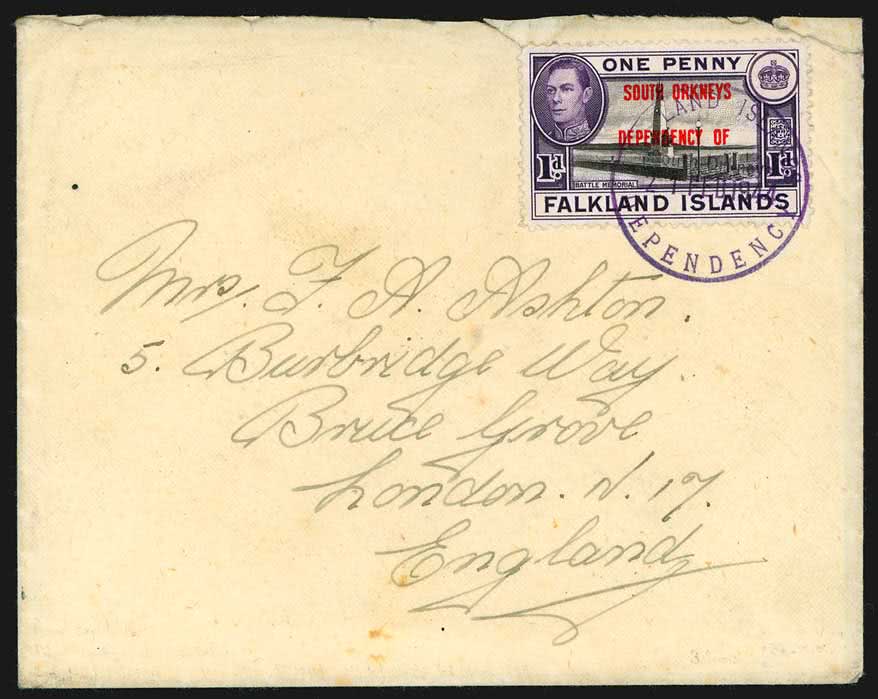 ONE PENNY
SOUTH ORKNEYS
DEPENDENCY OF
1d. 1d.
BATTLE MEMORIAL
FALKLAND ISLANDS
LAND IS
DEPENDENC
Mrs. F. A. Ashton.
5. Burbridge Way.
Bruce Grove
London. N. 17.
England